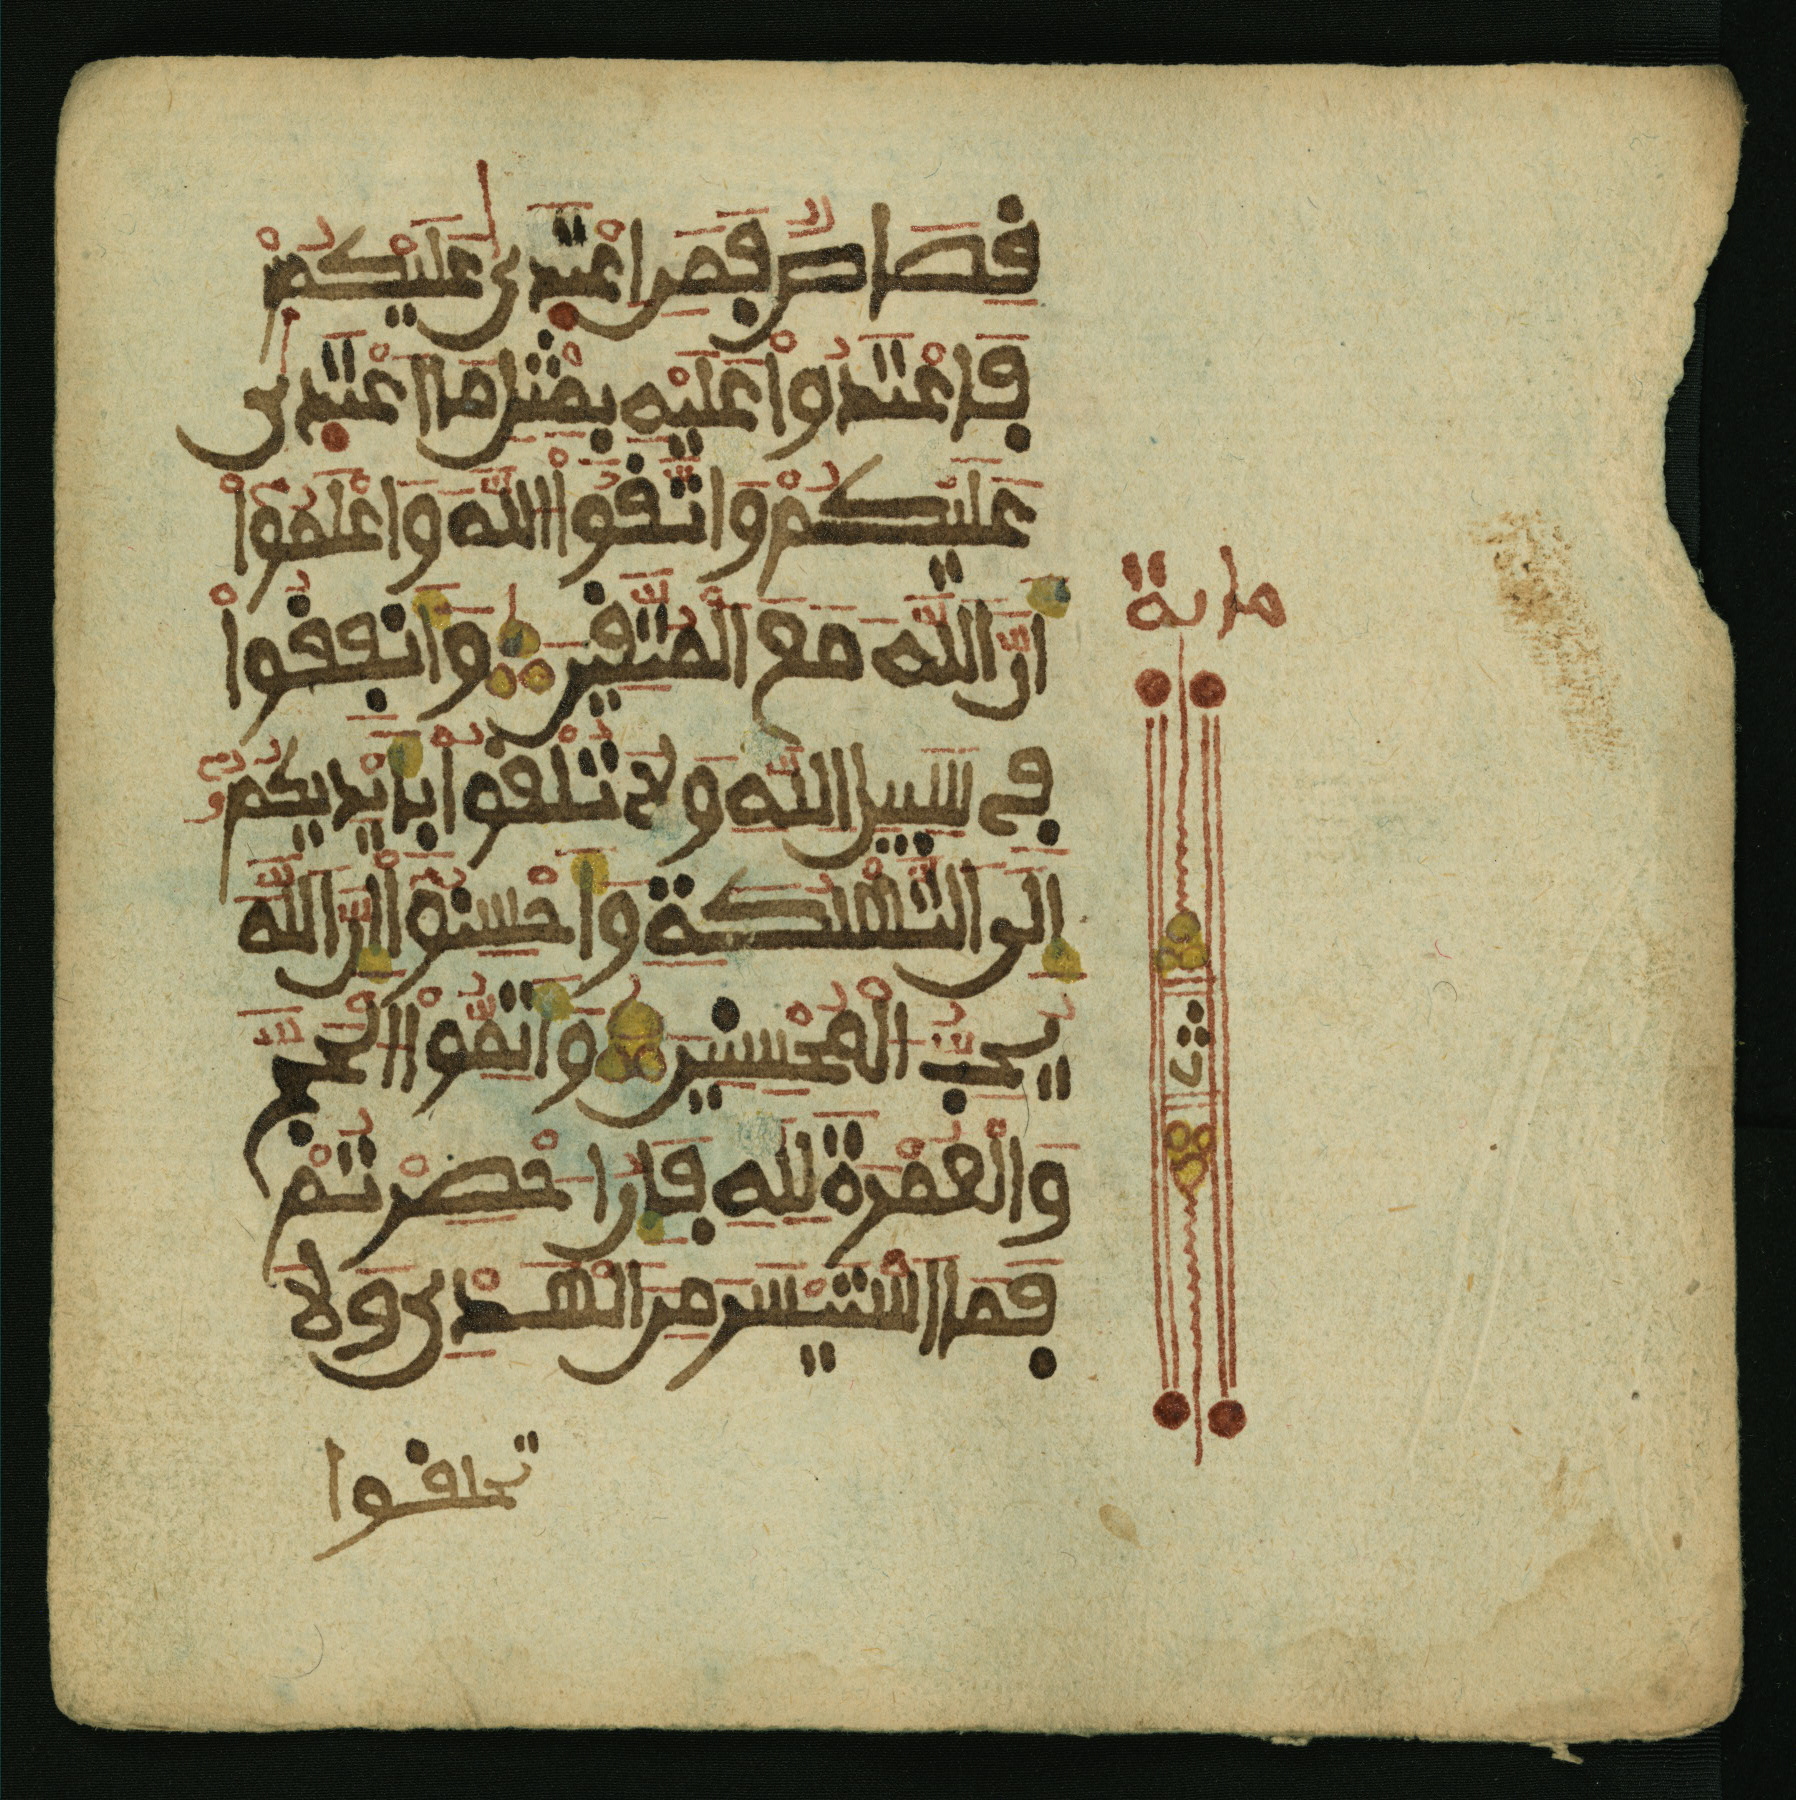 قِصَاصٌ فَمَنِ اعْتَدَىٰ عَلَيْكُمْ
فَاعْتَدُوا عَلَيْهِ بِمِثْلِ مَا اعْتَدَىٰ
عَلَيْكُمْ وَاتَّقُوا اللَّهَ وَاعْلَمُوا
أَنَّ اللَّهَ مَعَ الْمُتَّقِينَ وَأَنفِقُوا
فِي سَبِيلِ اللَّهِ وَلَا تُلْقُوا بِأَيْدِيكُمْ
إِلَى التَّهْلُكَةِ وَأَحْسِنُوا إِنَّ اللَّهَ
يُحِبُّ الْمُحْسِنِينَ وَأَتِمُّوا الْحَجَّ
وَالْعُمْرَةَ لِلَّهِ فَإِنْ أُحْصِرْتُمْ
فَمَا اسْتَيْسَرَ مِنَ الْهَدْيِ وَلَا
تحلقوا
ماية